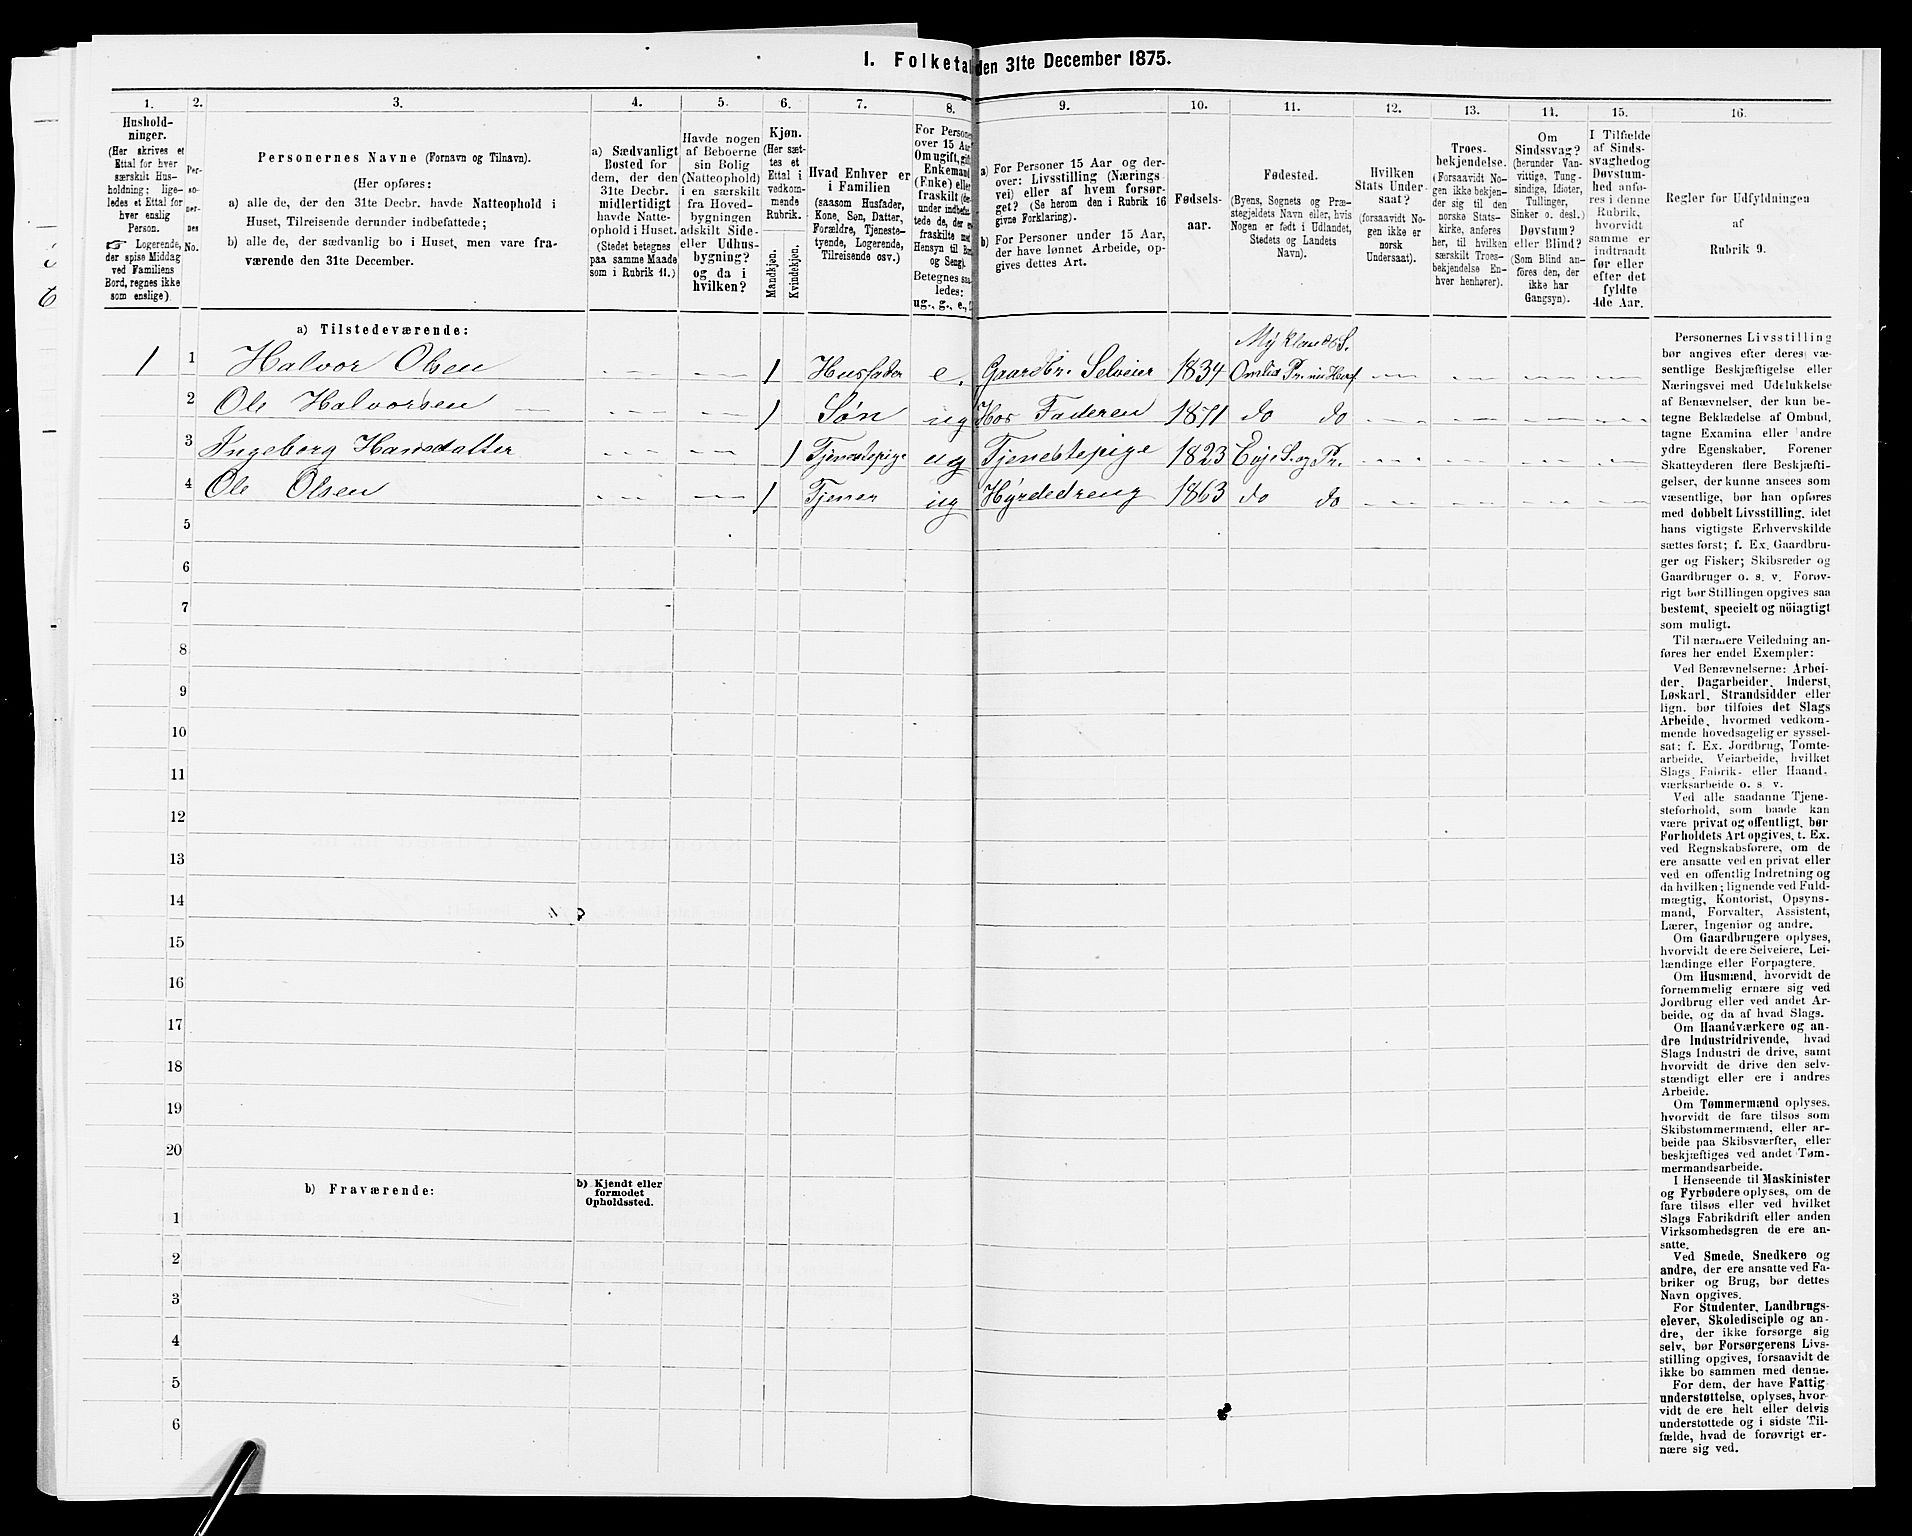 I. Folketal den 31te December 1875.
1. 2. 3. 4. 5. 6. 7. 8. 9. 10. 11. 12. 13. 14. 15. 16.
Hushold-
ninger.
(Her skrives et
Ettal for hver
særskilt Hus-
holdning; lige-
ledes et Ettal for
hver enslig
Person.
☞ Logerende,
der spise Middag
ved Familiens
Bord, regnes ikke
som enslige).
Per-
so-
ner-
nes
No.
Personernes Navne (Fornavn og Tilnavn).
(Her opføres:
a) alle de, der den 31te Decbr. havde Natteophold i
Huset, Tilreisende derunder indbefattede;
b) alle de, der sædvanlig bo i Huset, men vare fra-
værende den 31te December.
a) Sædvanligt
Bosted for
dem, der den
31te Decbr.
midlertidigt
havde Natte-
ophold i Huset.
(Stedet betegnes
paa samme Maade
som i Rubrik 11.)
Havde nogen
af Beboerne
sin Bolig
(Natteophold)
i en særskilt
fra Hoved-
bygningen
adskilt Side-
eller Udhus-
bygning?
og da i
hvilken?
Kjøn.
(Her sæt-
tes et
Ettal i
vedkom-
mende
Rubrik.
Mandkjøn.
Kvindekjøn.
Hvad Enhver er
i Familien
(saasom Husfader,
Kone, Søn, Datter,
Forældre, Tjeneste-
tyende, Logerende,
Tilreisende osv.)
For Persone
over 15 Aar
Om ugift, gift
Enkemand
(Enke) eller
fraskilt (der-
under indbefat-
tede de, der ere
fraskilte med
Hensyn til Bord
og Seng).
Betegnes saa-
ledes:
ug., g., e.,
a) For Personer 15 Aar og der-
over: Livsstilling (Nærings
vei) eller af hvem forsør-
get? (Se herom den i Rubrik 16
givne Forklaring).
b) For Personer under 15 Aar,
der have lønnet Arbeide, op-
gives dettes Art.
Fødsels-
aar.
Fødested.
(Byens, Sognets og Præ-
stegjeldets Navn eller, hvis
Nogen er født i Udlandet,
Stedets og Landets
Navn).
Hvilken
Stats Under-
saat?
(forsaavidt No-
gen ikke er
norsk
Undersaat).
Troes-
bekjendelse.
(Forsaavidt No-
gen ikke bekjen-
der sig til den
norske Stats-
kirke, anføres
her, til hvilken
særskilt Troes-
bekjendelse En-
hver henhører).
Om
Sindssvag?
(herunder Van-
vittige, Tung-
sindige, Idioter,
Tullinger,
Sinker o. desl.)
Døvstum?
eller Blind?
(Som Blind an-
føres den, der
ikke har
Gangsyn).
I Tilfælde
af Sinds-
svaghedog
Døvstum-
hed anfø-
res i denne
Rubrik,
hvorvidt
samme er
indtraadt
før eller
efter det
fyldte
4de Aar.
Regler for Udfyldningen
af
Rubrik 9.
a) Tilstedeværende:
Myklands S.
1 1 Halvor Olsen 1 Husfader e. Gaardbr. Selveier 1834 Omlid Pr.
2 Ole Halvorsen 1 Søn ug Hos Faderen 1871 do do
3 Ingeborg Hansdatter 1 Tjenestepige ug Tjenestepige 1823 Evje S. og Pr.
4 Ole Olsen 1 Tjener ug Hyrdedreng 1863 do do
5
6
7
8
9
10
11
12
13
14
15
16
17
18
19
20
b) Fraværende:
b) Kjendt eller
formodet
Opholdssted.
1
2
3
4
5
6
Personernes Livsstilling
bør angives efter deres væ-
sentlige Beskjæftigelse eller
Næringsvei med Udelukkelse
af Benævnelser, der kun be-
tegne Beklædelse af Ombud,
tagne Examina eller andre
ydre Egenskaber. Forener
Skatteyderen flere Beskjæfti-
gelser, der kunne ansees som
væsentlige, bør han opføres
med dobbelt Livsstilling, idet
hans vigtigste Erhvervskilde
sættes først; f. Ex. Gaardbru-
ger og Fisker; Skibsreder og
Gaardbruger o. s. v. Forøv-
rigt bør Stillingen opgives saa
bestemt, specielt og nöiagtigt
som muligt.
Til nærmere Veiledning an-
føres her endel Exempler:
Ved Benævnelserne: Arbei-
der, Dagarbeider, Inderst,
Løskarl, Strandsidder eller
lign. bør tilføies det Slags
Arbeide, hvormed vedkom-
mende hovedsagelig er syssel-
sat; f. Ex. Jordbrug, Tomte-
arbeide, Veiarbeide, hvilket
Slags Fabrik- eller Haand-
værksarbeide o. s. v.
Ved alle saadanne Tjene-
steforhold, som baade kan
være privat og offentligt, bør
Forholdets Art opgives, t. Ex.
ved Regnskabsførere, om de
ere ansatte ved en privat eller
ved en offentlig Indretning og
da hvilken; lignende ved Fuld-
mægtig, Kontorist, Opsyns-
mand, Forvalter, Assistent,
Lærer, Ingeniør og andre.
Om Gaardbrugere oplyses,
hvorvidt de ere Selveiere, Lei-
lændinge eller Forpagtere.
Om Husmænd, hvorvidt de
fornemmelig ernære sig ved
Jordbrug eller ved andet Ar-
beide, og da af hvad Slags.
Om Haandværkere og an-
dre Industridrivende, hvad
Slags Industri de drive, samt
hvorvidt de drive den selv-
stændigt eller ere i andres
Arbeide.
Om Tømmermænd oplyses,
hvorvidt de fare tilsøs som
Skibstømmermænd, eller ar-
beide paa Skibsværfter, eller
beskjæftiges ved andet Tøm-
mermandsarbeide.
I Henseende til Maskinister
og Fyrbødere oplyses, om de
fare tilsøs eller ved hvilket
Slags Fabrikdrift eller anden
Virksomhedsgren de ere an-
satte.
Ved Smede, Snedkere og
andre, der ere ansatte ved Fa-
briker og Brug, bør dettes
Navn opgives.
For Studenter, Landbrugs-
elever, Skoledisciple og an-
dre, der ikke forsørge sig
selv, bør Forsørgerens Livs-
stilling opgives, forsaavidt de
ikke bo sammen med denne.
For dem, der have Fattig-
understøttelse, oplyses, hvor-
vidt de ere helt eller delvis
understøttede og i sidste Til-
fælde, hvad de forøvrigt er-
nære sig ved.